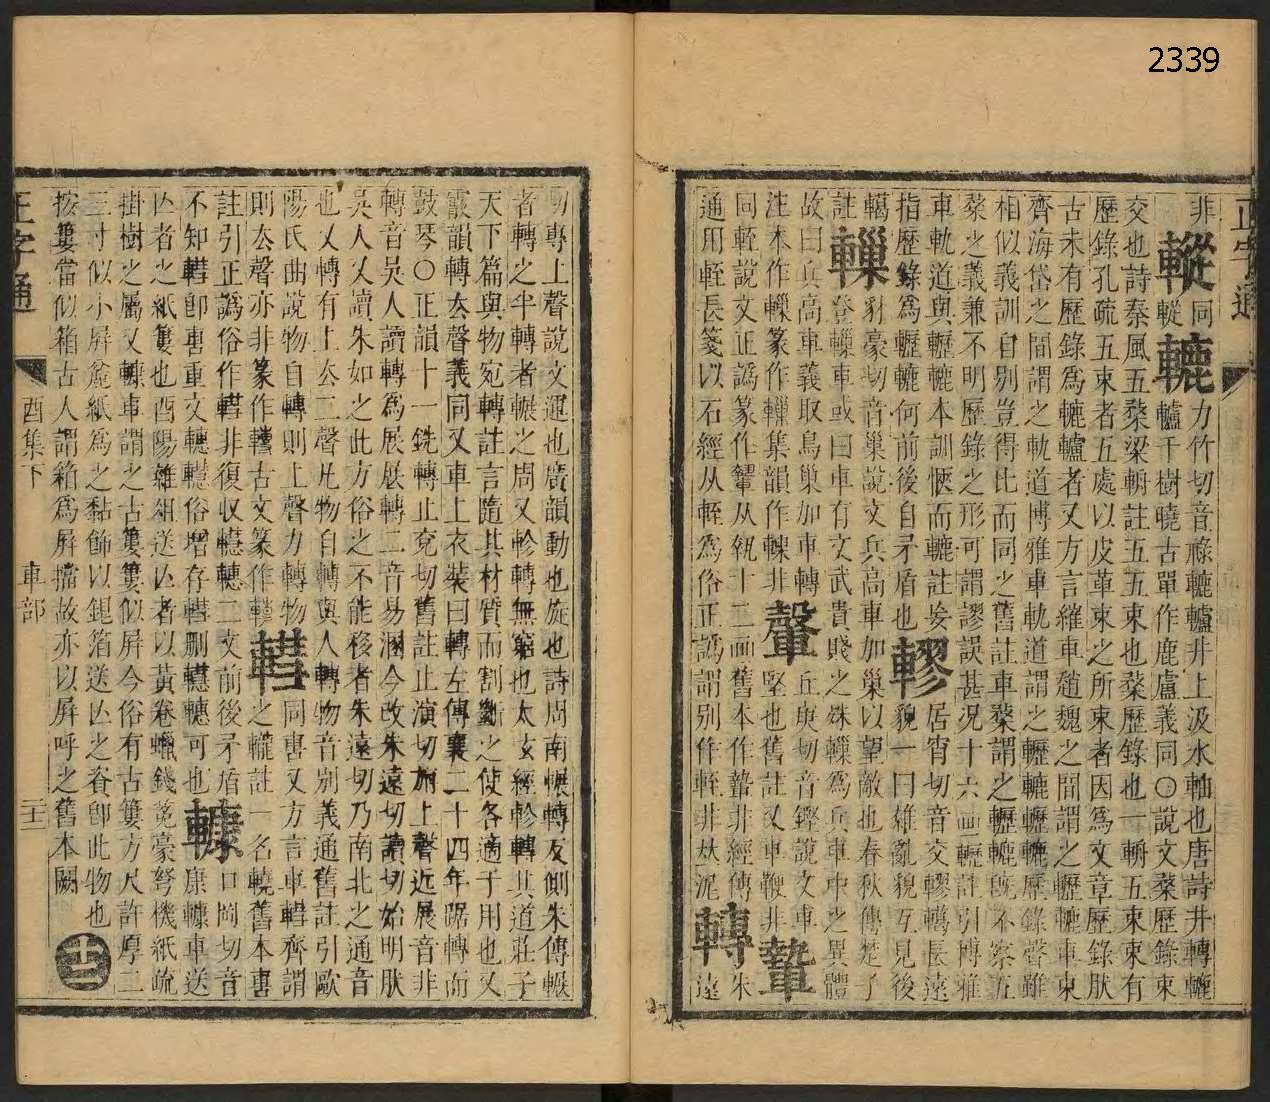 2339
正字通
非
䡮同䡯轆力竹切音祿轆轤井上汲水軸也唐詩井轉轆
轤千樹曉古單作鹿盧義同○說文楘歷錄束
交也詩秦風五楘梁輈註五五束也楘歷錄也一輈五束束有
歷錄孔疏五束者五處以皮革束之所束者因爲文章歷錄肰
古未有歷錄爲轆轤者又方言維車趙魏之間謂之轣轆車東
齊海岱之間謂之軌道博雅車軌道謂之轣轆轣轆歷錄聲雖
相似義訓自別豈得比而同之舊註車楘謂之轣轆旣不察五
楘之義兼不明歷錄之形可謂謬誤甚况十六畫轣註引博雅
車軌道與轣轆本訓愜而轆註妄
指歷錄爲轣轆何前後自矛盾也轇居宵切音交轇轕長遠
貌一曰雜亂貌互見後
轕
註轈豺豪切音巢說文兵高車加巢以望敵也春秋傳楚子
登轈車或曰車有文武貴賤之殊轈爲兵車車之異體
故曰兵高車義取鳥巢加車轉
注本作轈篆作轈集韻作樔非䡰丘庚切音鏗說文車
堅也舊註又車鞕非蟄
同輊說文正譌篆作䡹从執十二畫舊本作蟄非經傳朱
通用輊長箋以石經从輊爲俗正譌謂别作輊非𠀤泥轉遠
切專上聲說文運也廣韻動也旋也詩周南輾轉反側朱傳輾
者轉之半轉者輾之周又軫轉無窮也太玄經軫轉其道莊子
天下篇與物宛轉註言隨其材質而割斷之使各適于用也又
霰韻轉去聲義同又車上衣裝曰轉左傳襄二十四年踞轉而
鼓琴○正韻十一銑轉止兗切舊註止演切旃上聲近展音非
轉音吳人讀轉爲展展轉二音易溷今改朱遠切讀切始明肰
吳人又讀朱如之此方俗之不能移者朱遠切乃南北之通音
也又轉有上去二聲凡物自轉與人轉物音別義通舊註引歐
陽氏曲說物自轉則上聲力轉物
則去聲亦非篆作轉古文篆作轉䡺同軎又方言車䡺齊謂
之轆註一名軏舊本軎
註引正譌俗作䡺非復収轊轊二文前後矛盾
不知䡺卽軎重文轊轊俗增存䡺刪轊轊可也䡷口岡切音
康䡷車送
亾者之紙簍也酉陽雜俎送亾者以黃卷蠟錢菟毫弩機紙疏
掛樹之屬又轗車謂之古簍簍似屏今俗有古簍方尺許厚二
三寸似小屏龕紙爲之黏飾以鈮箔送亾之眷卽此物也
按簍當似箱古人謂箱爲屏擋故亦以屏呼之舊本闕
正字通
酉集下
車部
二十二